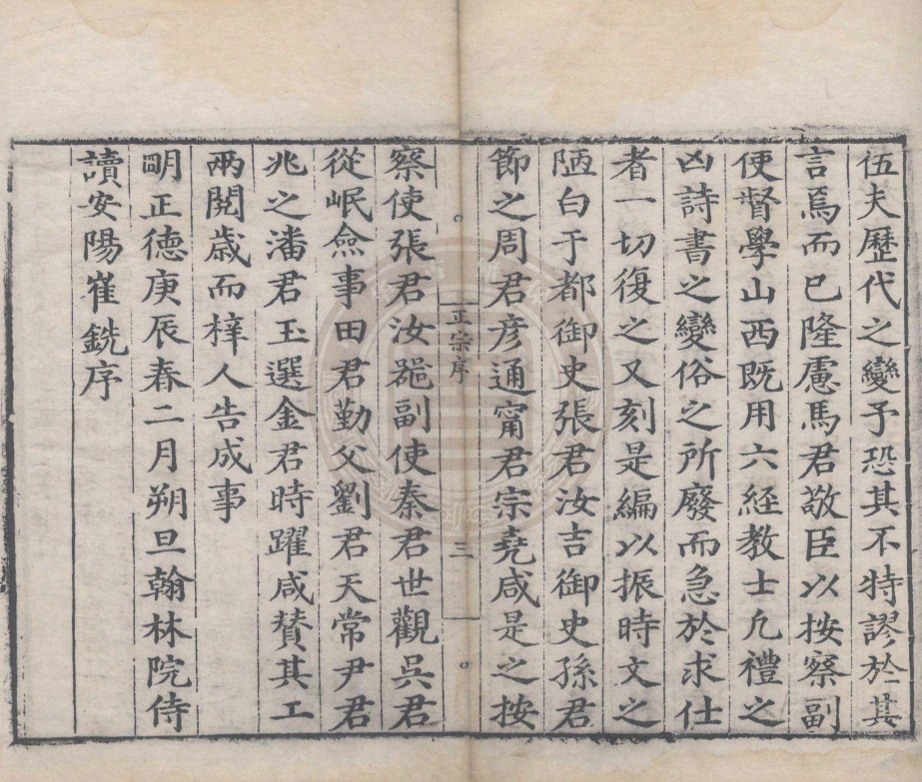 伍夫歷代之變予恐其不特謬於其
言焉而已隆慮馬君敬臣以按察副
使督學山西既用六經教士凢禮之
凶詩書之變俗之所廢而急於求仕
者一切復之又刻是編以振時文之
陋白于都御史張君汝吉御史孫君
節之周君彦通甯君宗堯咸是之按
正宗序
三
察使張君汝𥖎副使秦君世觀吳君
從岷僉事田君勤父劉君天常尹君
兆之潘君玉選金君時躍咸賛其工
兩閱歲而梓人告成事
明正德庚辰春二月朔旦翰林院侍
讀安陽崔銑序